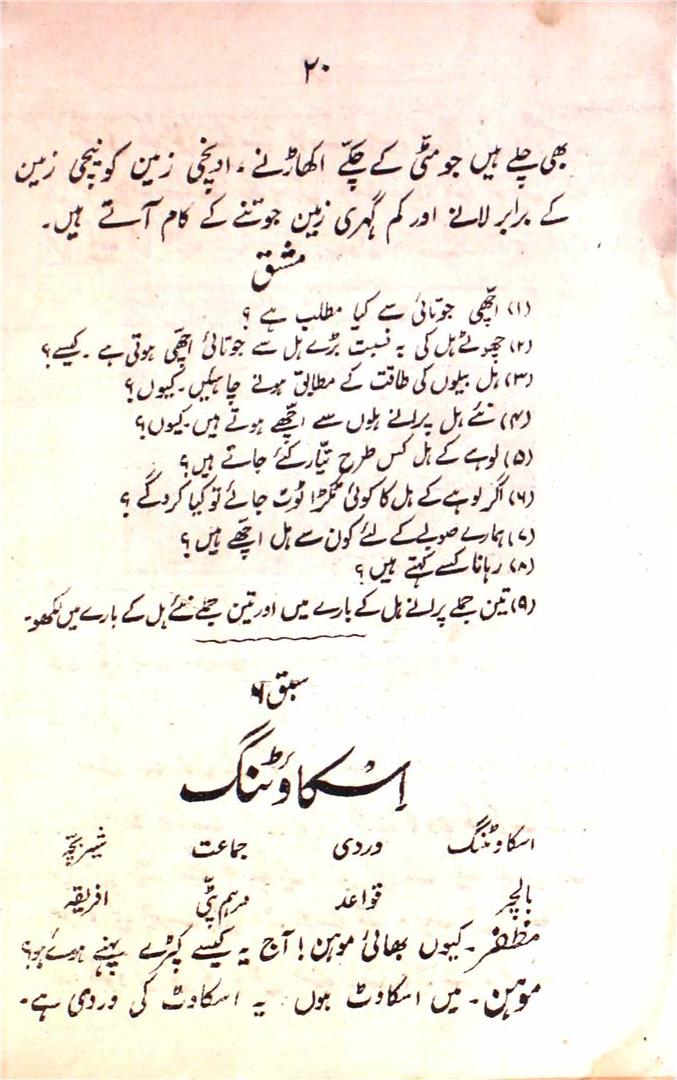 ۲۰
بھی چلے ہیں جو مٹّی کے چکّے اکھاڑنے، اونچی زمین کو نیچی زمین
کے برابر لانے اور کم گہری زمین جوتنے کے کام آتے ہیں۔
مشق
(۱) اچّھی جوتائی سے کیا مطلب ہے ؟
(۲) چھوٹے ہل کی بہ نسبت بڑے ہل سے جوتائی اچّھی ہوتی ہے ۔ کیسے؟
(۳) ہل بیلوں کی طاقت کے مطابق ہونے چاہئیں۔ کیوں؟
(۴) نئے ہل پرانے ہلوں سے اچّھے ہوتے ہیں۔ کیوں؟
(۵) لوہے کے ہل کس طرح تیّار کئے جاتے ہیں؟
(۶) اگر لوہے کے ہل کا کوئی ٹکڑا ٹوٹ جائے تو کیا کروگے ؟
(۷) ہمارے صوبے کے لئے کون سے ہل اچّھے ہیں ؟
(۸) رہانا کسے کہتے ہیں ؟
(۹) تین جملے پرانے ہل کے بارے میں اور تین جملے نئے ہل کے بارے میں لکھو۔
سبق ۶
اِسکاؤٹنگ
اسکاوٹنگ وردی جماعت شیر بچّہ
بالچر قواعد مرہم پٹّی افریقہ
مظفر۔ کیوں بھائی موہن! آج یہ کیسے کپڑے پہنے ہوئے ہو؟
موہن۔ میں اسکاوٹ ہوں یہ اسکاوٹ کی وردی ہے۔